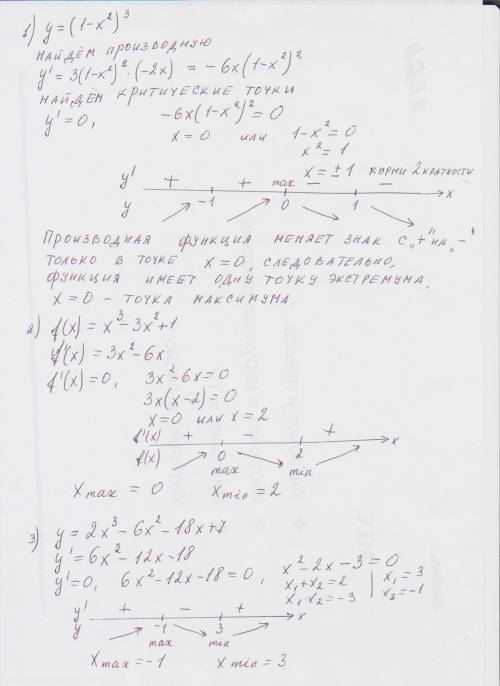 1) y = (1-x²)³
НАЙДЁМ ПРОИЗВОДНУЮ
y' = 3(1-x²)² · (-2x) = -6x(1-x²)²
НАЙДЁМ КРИТИЧЕСКИЕ ТОЧКИ
y' = 0, -6x(1-x²)² = 0
x = 0 или 1-x² = 0
x² = 1
x = ±1 КОРНИ 2 КРАТНОСТИ
y' + + max - - x
y -1 0 1
ПРОИЗВОДНАЯ ФУНКЦИЯ МЕНЯЕТ ЗНАК С „+" НА „-"
ТОЛЬКО В ТОЧКЕ x = 0, СЛЕДОВАТЕЛЬНО,
ФУНКЦИЯ ИМЕЕТ ОДНУ ТОЧКУ ЭКСТРЕМУМА,
x = 0 - ТОЧКА МАКСИМУМА
2) f(x) = x³ - 3x² + 1
f'(x) = 3x² - 6x
f'(x) = 0, 3x² - 6x = 0
3x(x-2) = 0
x = 0 или x = 2
f'(x) + - + x
f(x) 0 2
max min
x max = 0 x min = 2
3) y = 2x³ - 6x² - 18x + 7
y' = 6x² - 12x - 18
y' = 0, 6x² - 12x - 18 = 0, x² - 2x - 3 = 0
x₁ + x₂ = 2 | x₁ = 3
x₁ · x₂ = -3 | x₂ = -1
y' + - + x
y -1 3
max min
x max = -1 x min = 3